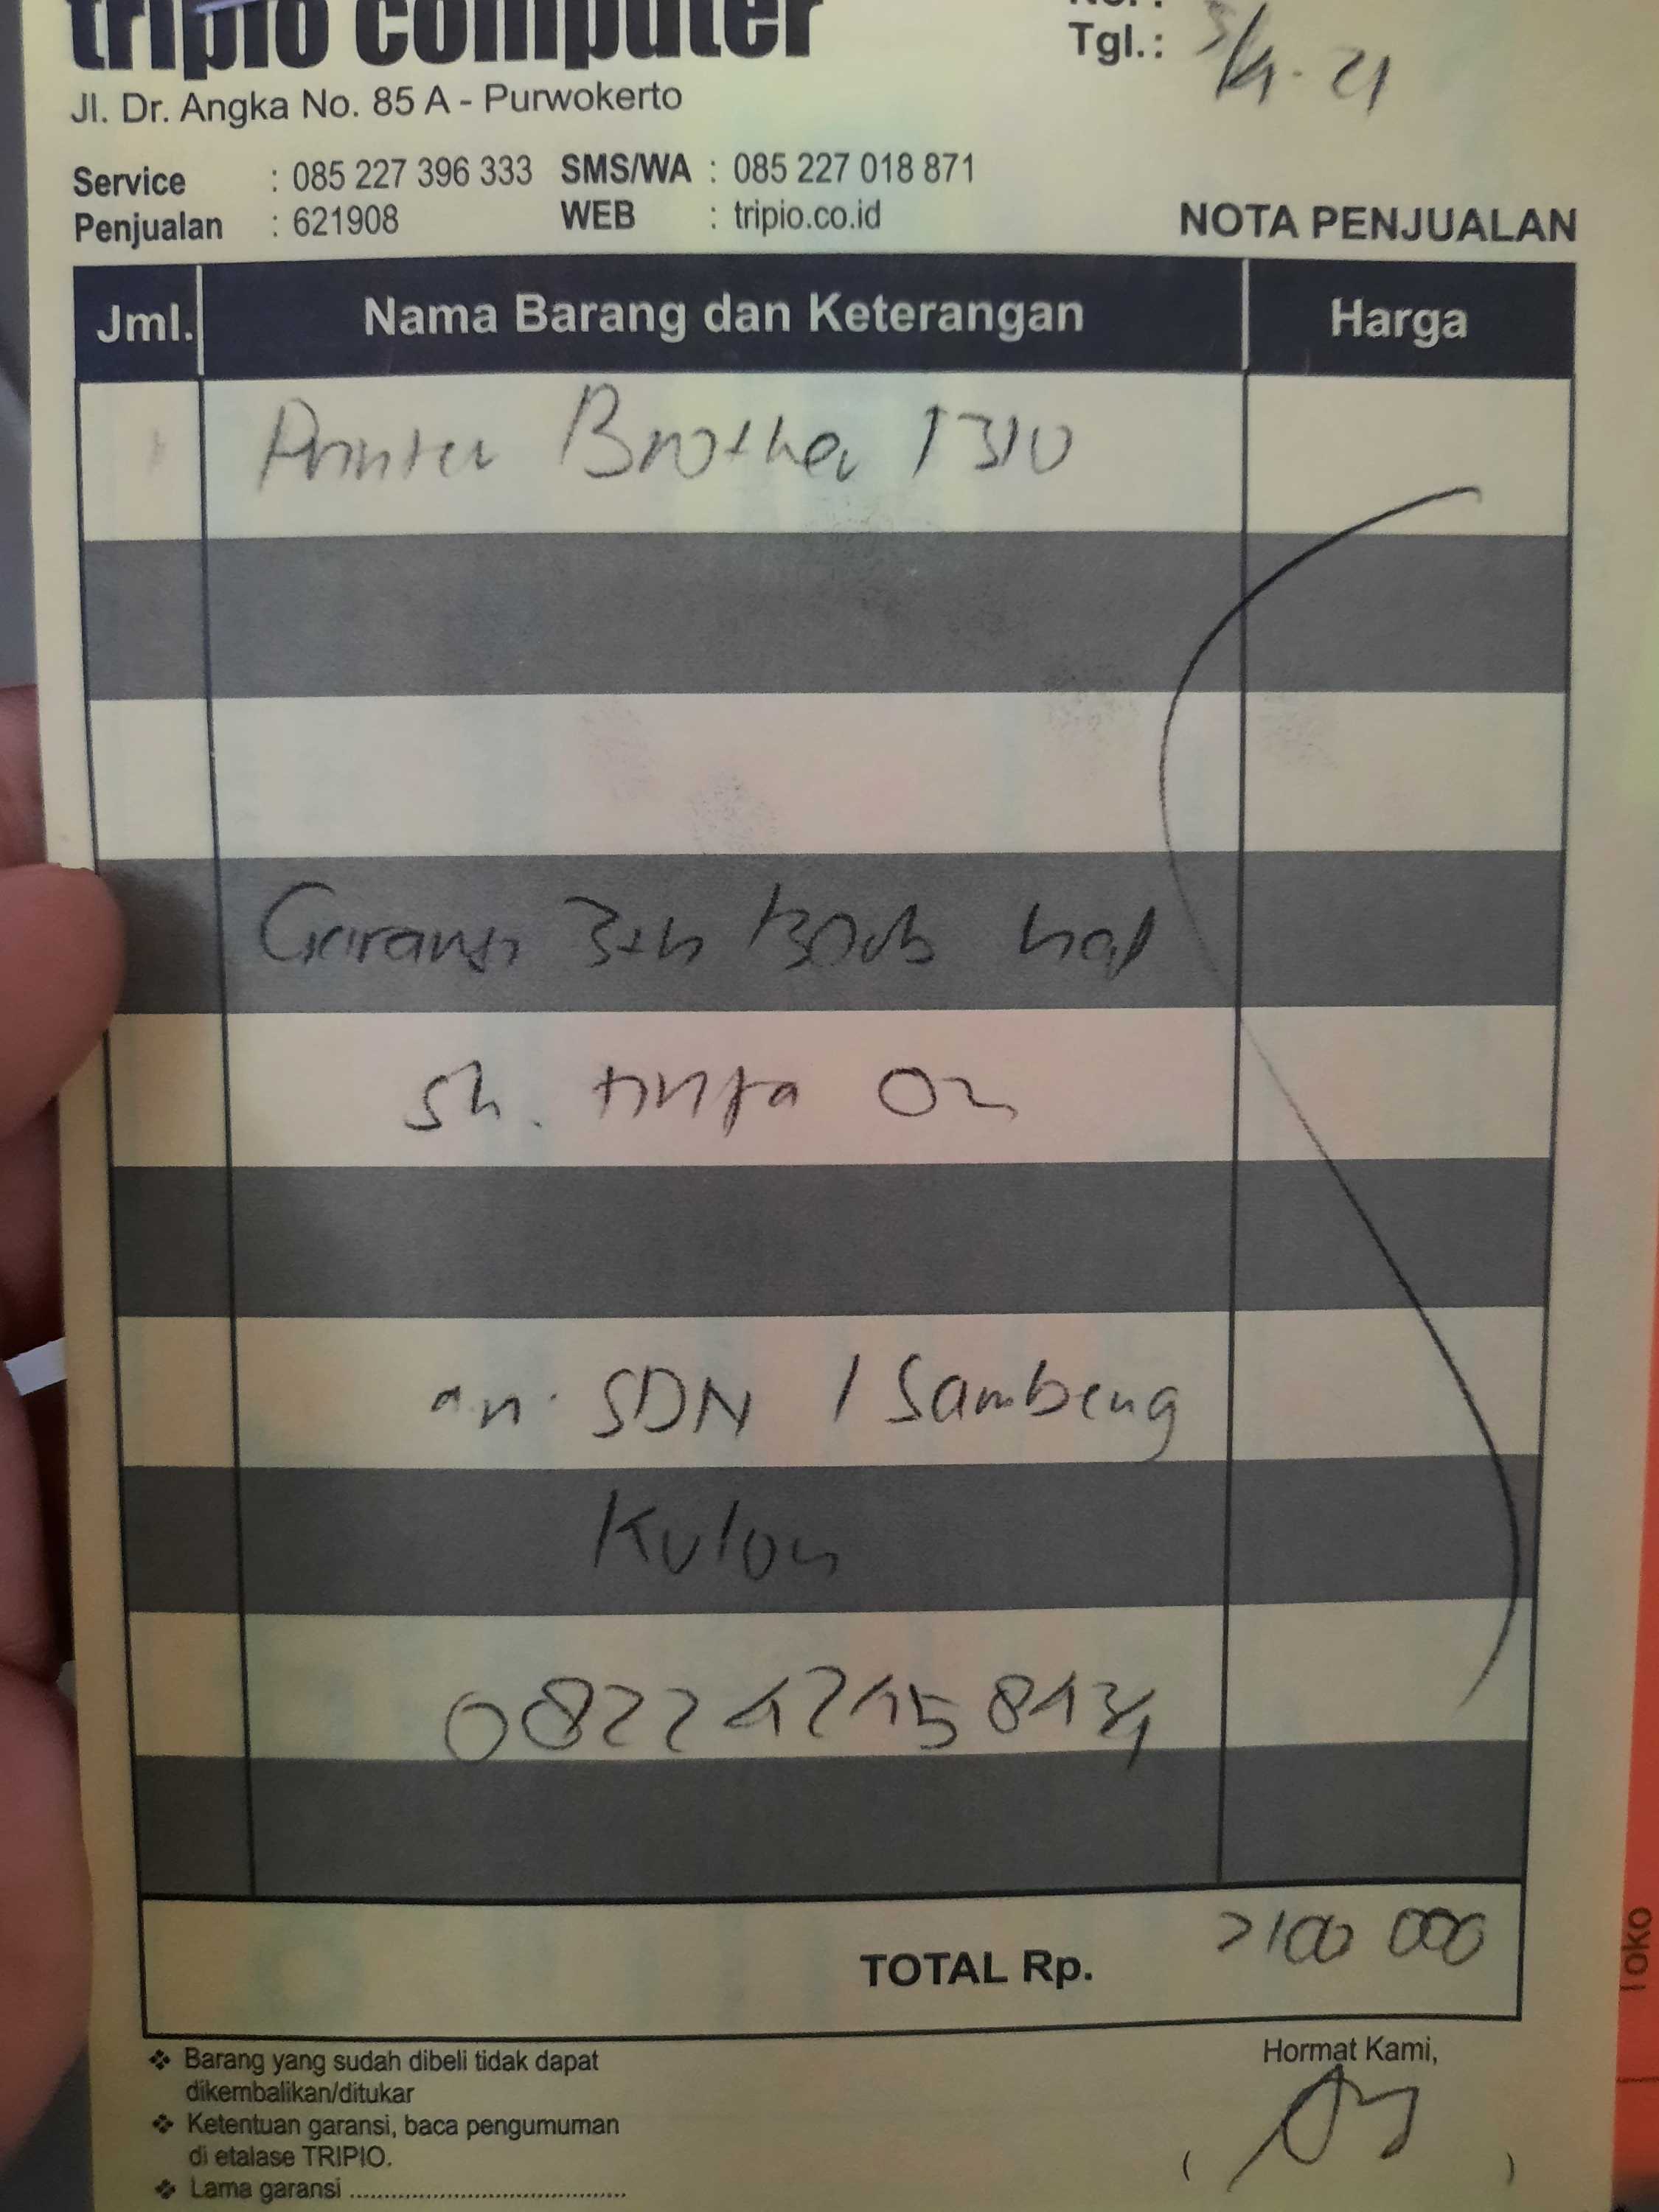 tripio computer
No. :
Tgl.: 5/4 - 21
Jl. Dr. Angka No. 85 A - Purwokerto
Service : 085 227 396 333 SMS/WA : 085 227 018 871
Penjualan : 621908 WEB : tripio.co.id
NOTA PENJUALAN
Jml. Nama Barang dan Keterangan Harga
1 Printer Brother T310
Garansi 3th / 30rb hal
sh. tinta On
an. SDN 1 Sambeng
Kulon
TOTAL Rp. 2100 000
❖ Barang yang sudah dibeli tidak dapat
dikembalikan/ditukar
❖ Ketentuan garansi, baca pengumuman
di etalase TRIPIO.
❖ Lama garansi ........................................
Hormat Kami,
( )
Toko